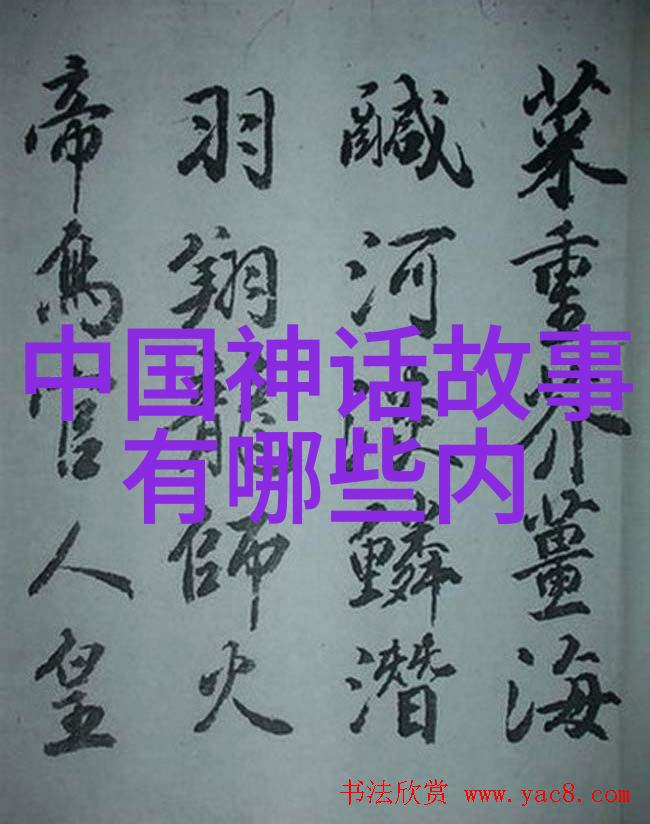 中国神话故事
有哪些内
菜重芥薑海
鹹河淡鱗潛
羽翔龍師火
帝鳥官人皇
书法欣赏 www.yac8.com